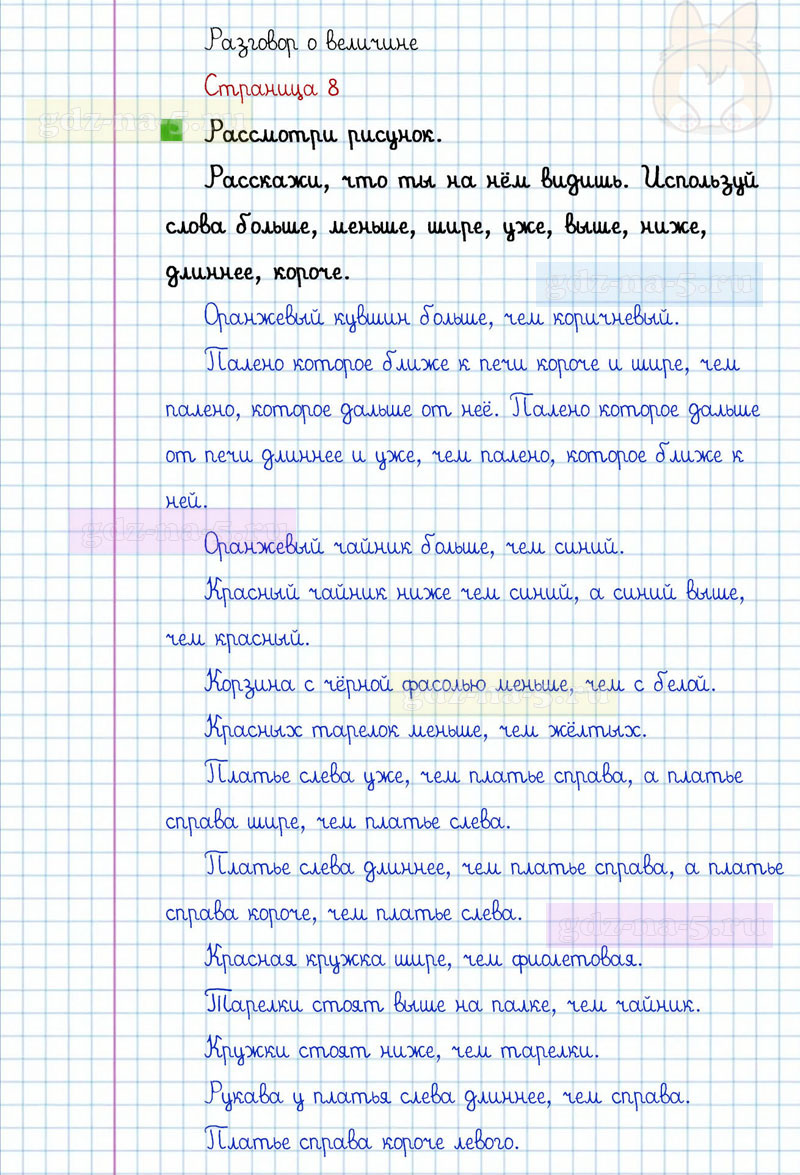 Разговор о величине
Страница 8
gdz-na-5.ru
Рассмотри рисунок.
Расскажи, что ты на нём видишь. Используй
слова больше, меньше, шире, уже, выше, ниже,
длиннее, короче.
gdz-na-5.ru
Оранжевый кувшин больше, чем коричневый.
Палено которое ближе к печи короче и шире, чем
палено, которое дальше от неё. Палено которое дальше
от печи длиннее и уже, чем палено, которое ближе к
ней.
gdz-na-5.ru
Оранжевый чайник больше, чем синий.
Красный чайник ниже чем синий, а синий выше,
чем красный.
Корзина с чёрной фасолью меньше, чем с белой.
gdz-na-5.ru
Красных тарелок меньше, чем жёлтых.
Платье слева уже, чем платье справа, а платье
справа шире, чем платье слева.
Платье слева длиннее, чем платье справа, а платье
справа короче, чем платье слева.
gdz-na-5.ru
Красная кружка шире, чем фиолетовая.
Тарелки стоят выше на палке, чем чайник.
Кружки стоят ниже, чем тарелки.
Рукава у платья слева длиннее, чем справа.
Платье справа короче левого.